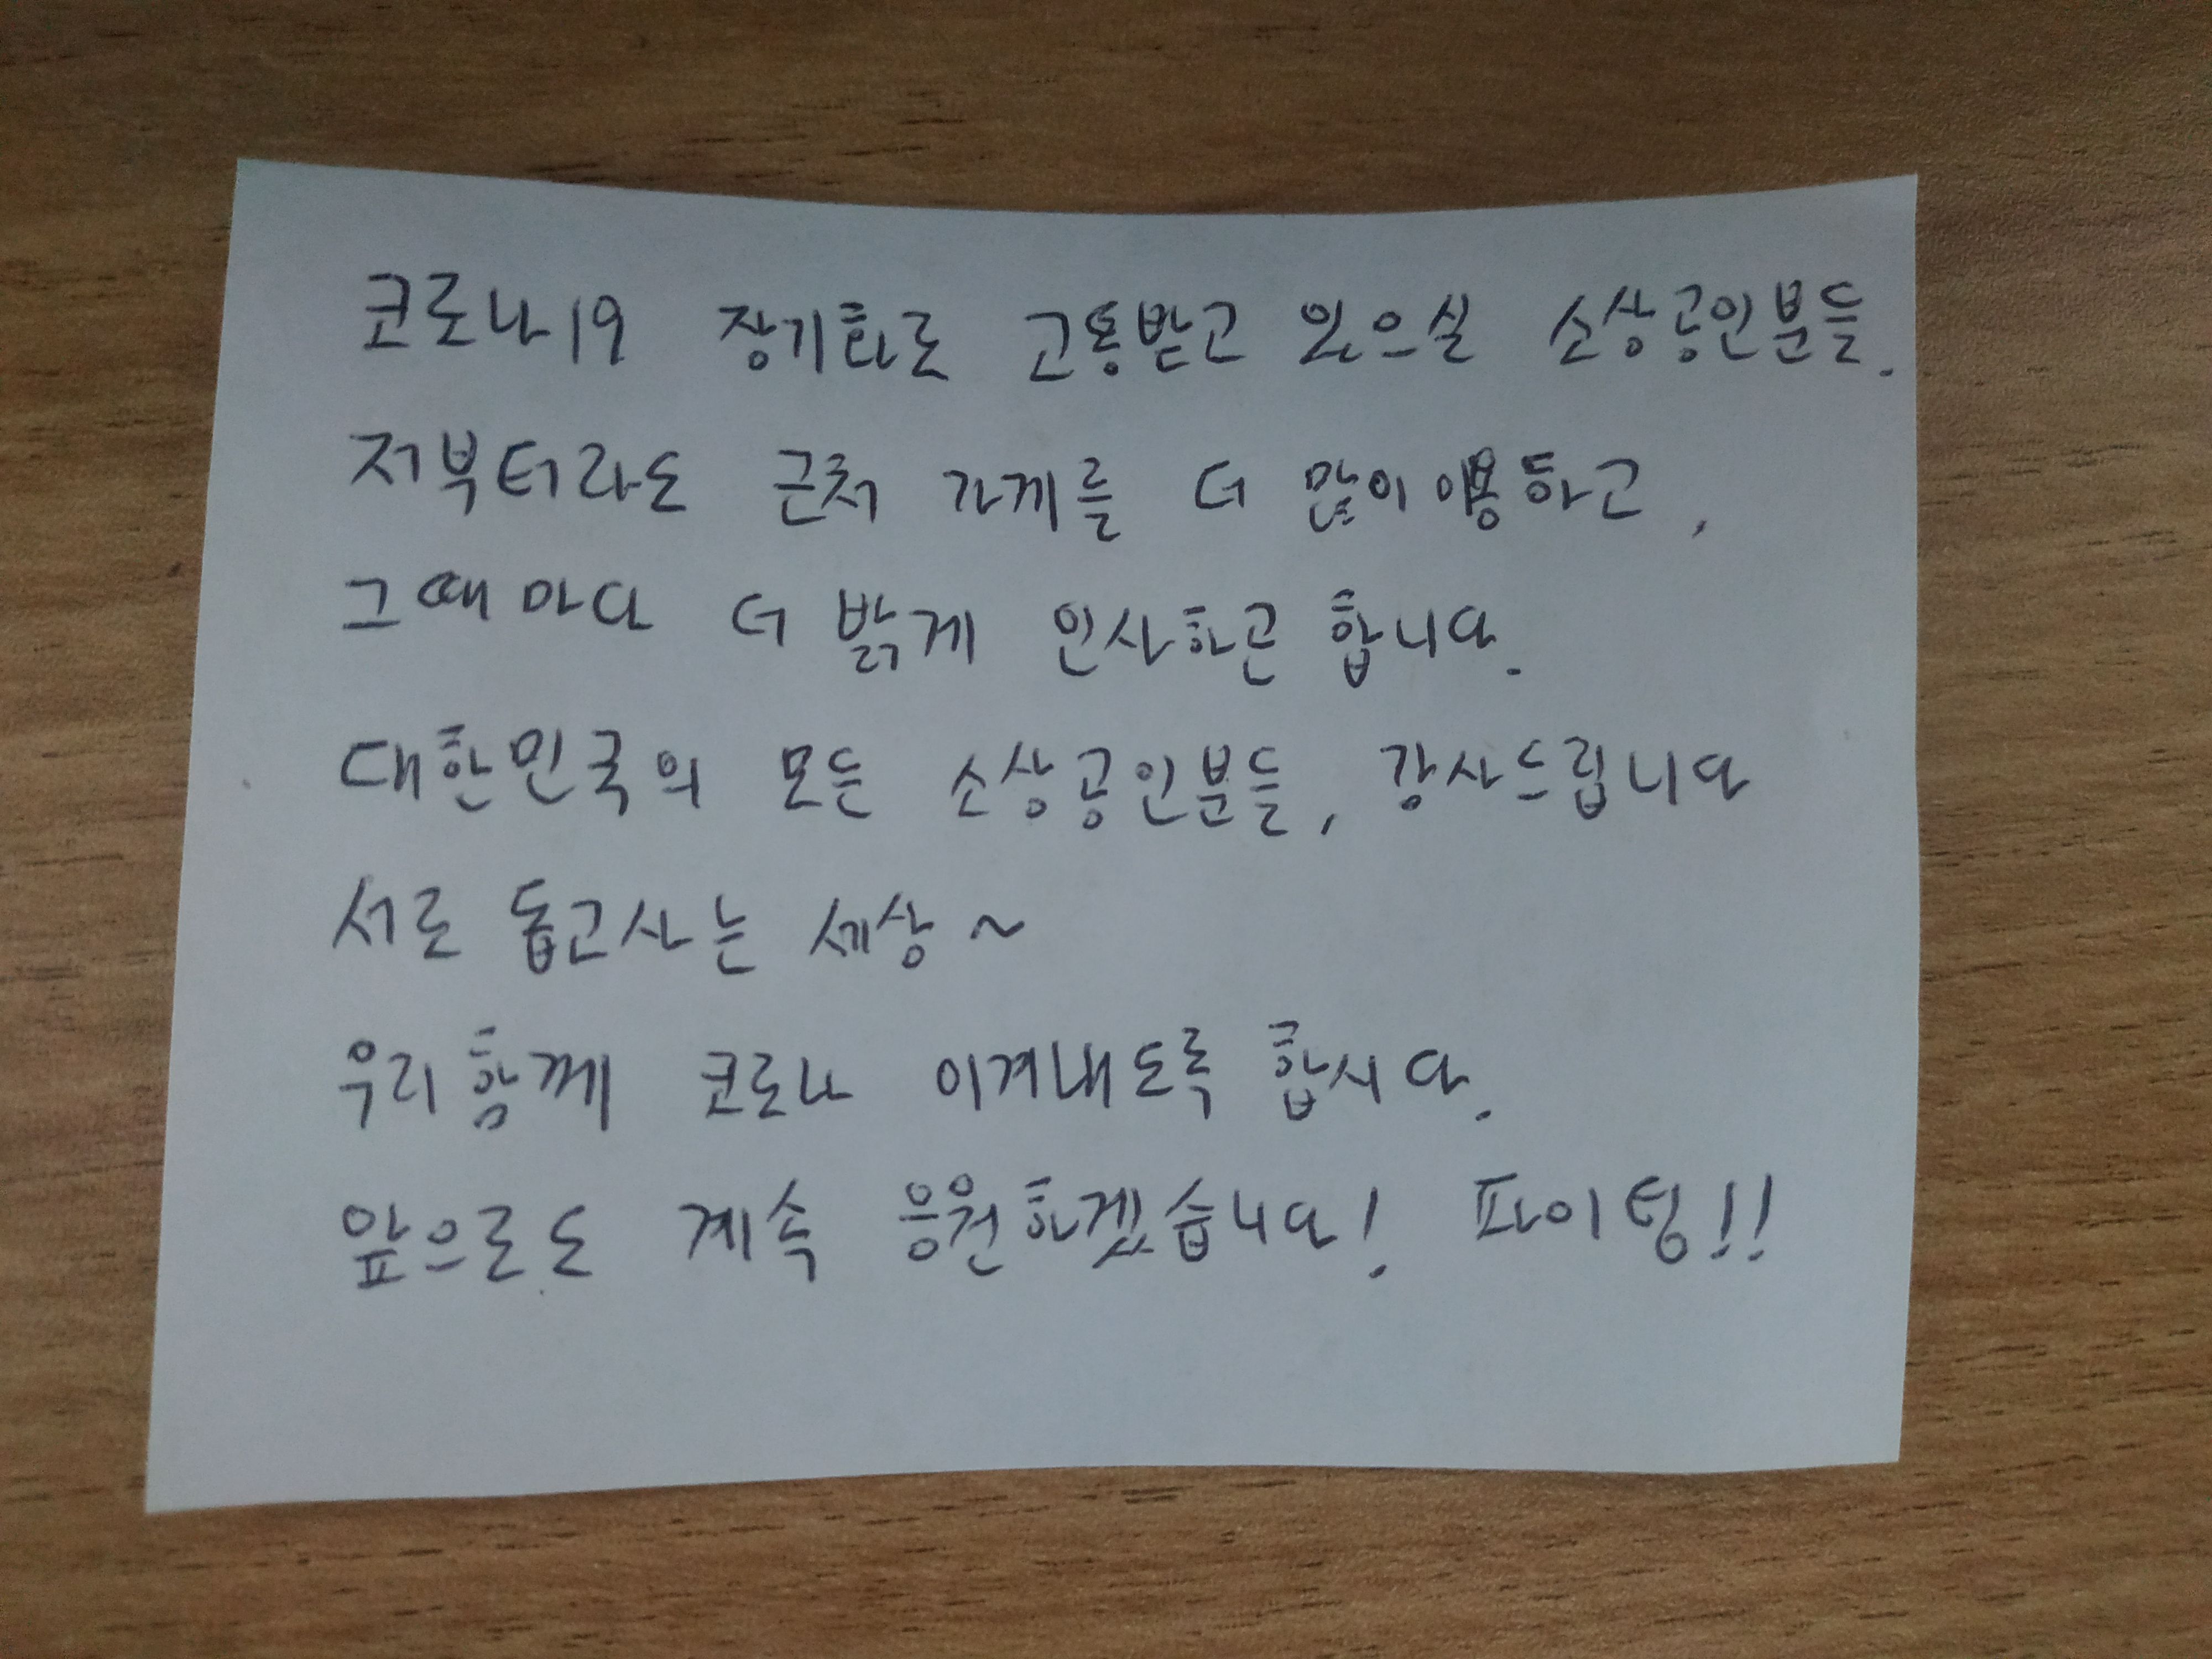 코로나19 장기화로 고통받고 있으실 소상공인분들.
저부터라도 근처 가게를 더 많이 이용하고,
그때마다 더 밝게 인사하곤 합니다.
대한민국의 모든 소상공인분들, 감사드립니다
서로 돕고사는 세상~
우리함께 코로나 이겨내도록 합시다.
앞으로도 계속 응원하겠습니다! 파이팅!!